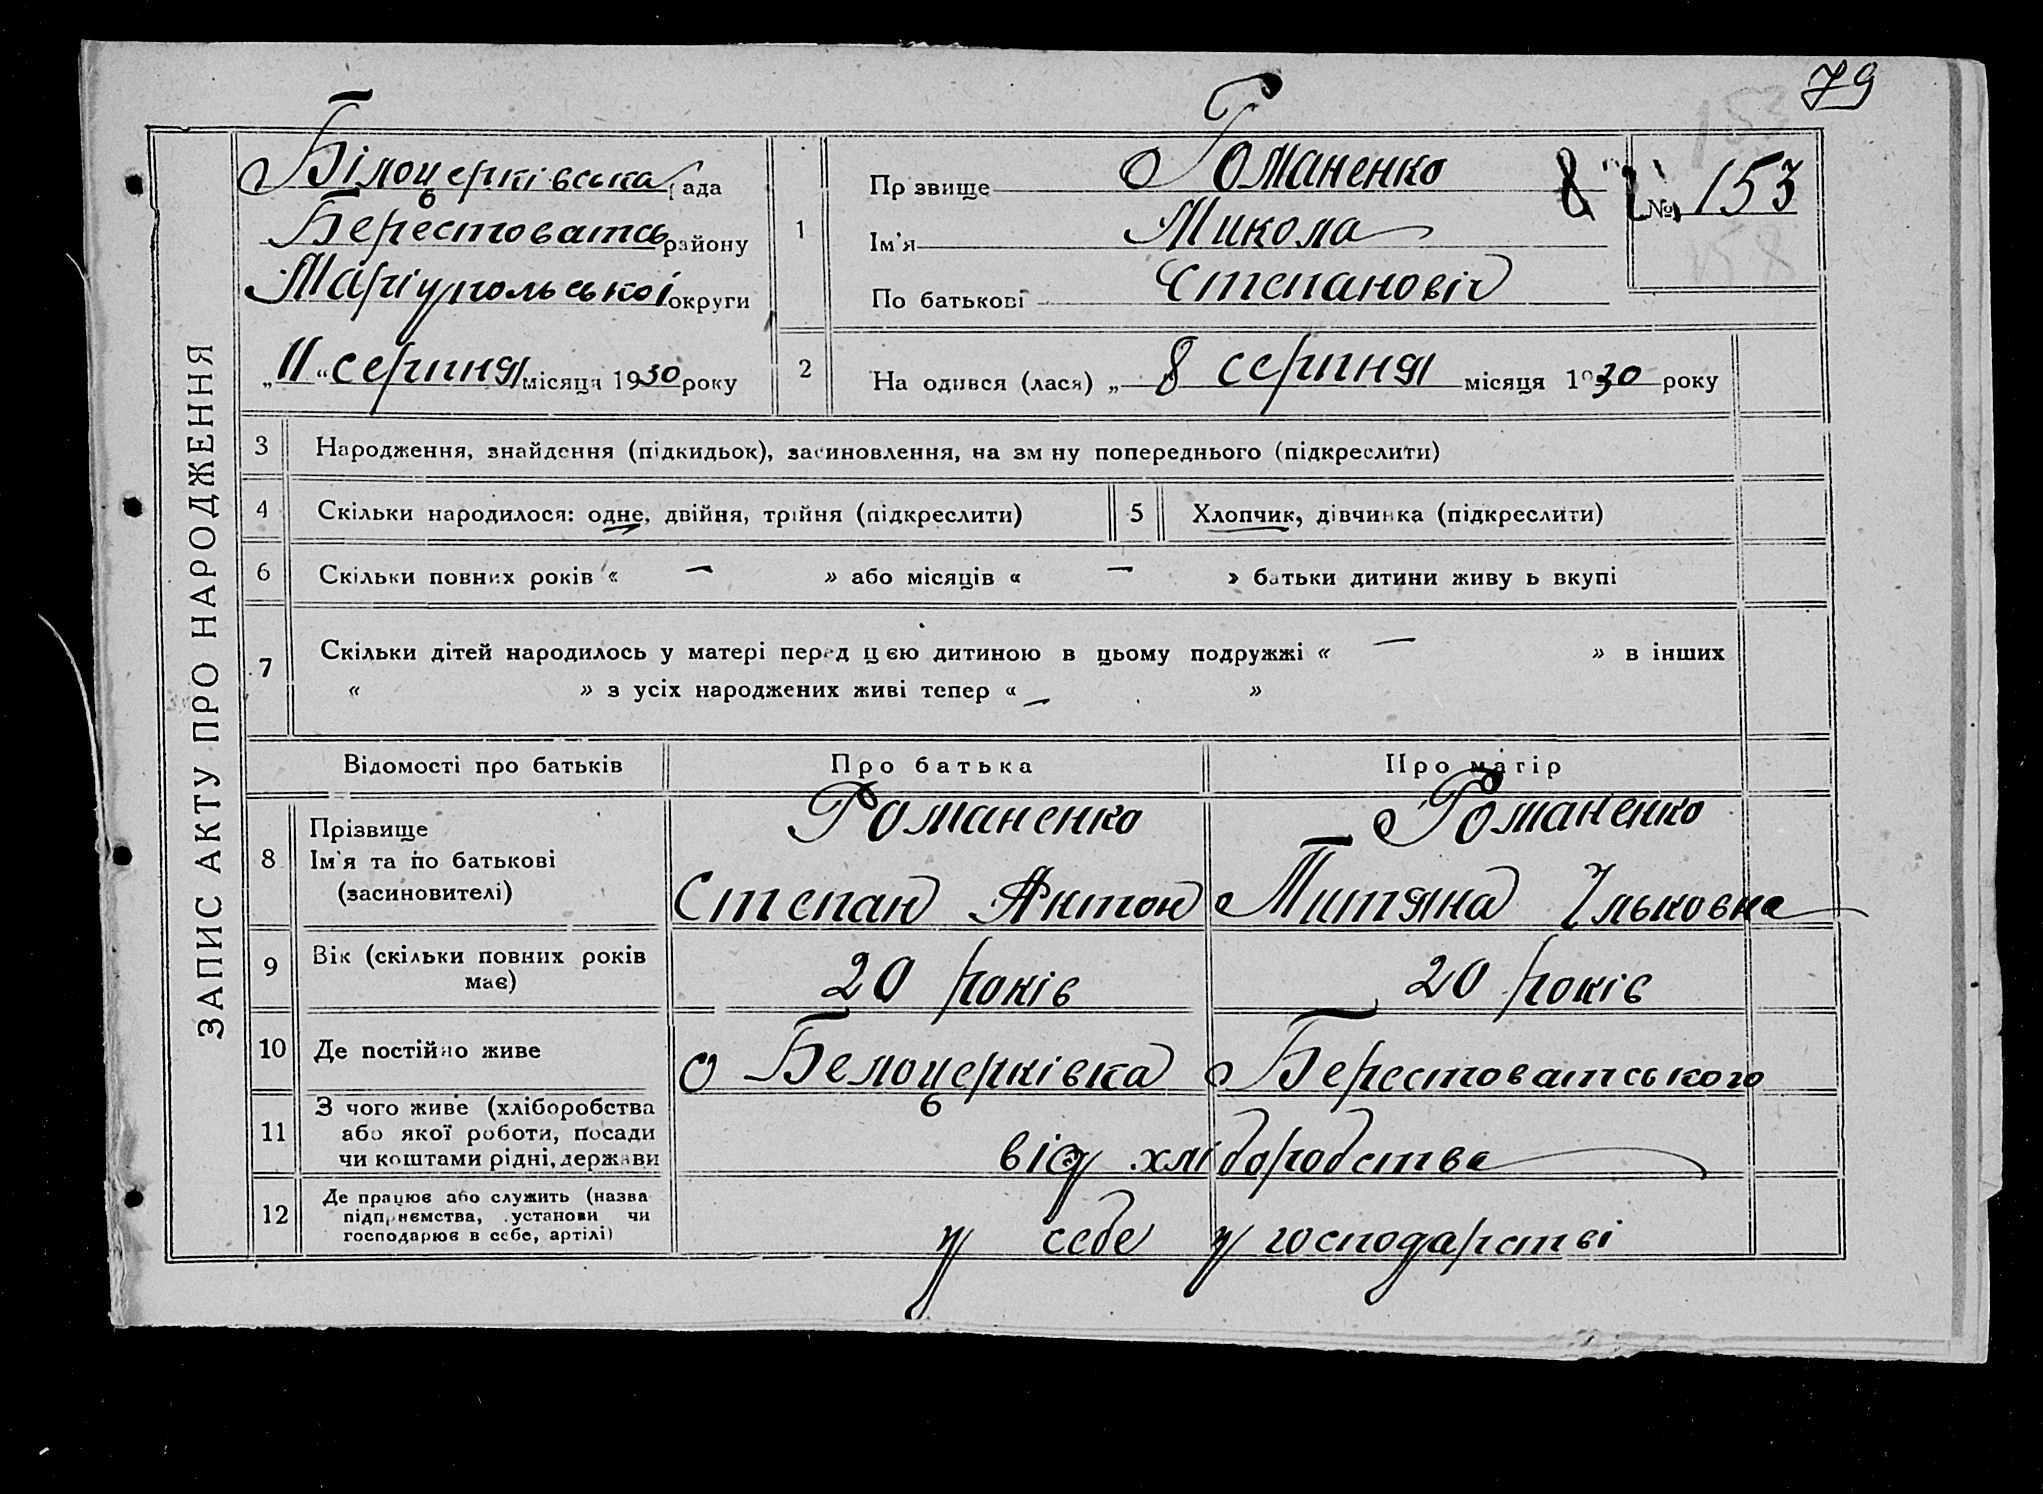 79
ЗАПИС АКТУ ПРО НАРОДЖЕННЯ
Білоцерківська рада
Берестоватсь району
Маріупольської округи
„11“ серпня місяця 1930 року
1 Прізвище Романенко
Ім'я Микола
По батькові Степановіч
№ 153
2 На одився (лася) „ 8 серпня місяця 1930 року
3 Народження, знайдення (підкидьок), засиновлення, на зм ну попереднього (підкреслити)
4 Скільки народилося: одне, двійня, трійня (підкреслити)
5 Хлопчик, дівчинка (підкреслити)
6 Скільки повних років « — » або місяців « — » батьки дитини живу ь вкупі
7 Скільки дітей народилось у матері перед цією дитиною в цьому подружжі « — » в інших
« » з усіх народжених живі тепер « — »
Відомості про батьків Про батька Про матір
8 Прізвище
Ім'я та по батькові
(засиновителі)
Романенко Романенко
Степан Антон Титяна Ільковна
9 Вік (скільки повних років
має)
20 років 20 років
10 Де постійно живе
с Белоцерківка Берестоватського
11 З чого живе (хліборобства
або якої роботи, посади
чи коштами рідні, держави
від хліборобства
12 Де працює або служить (назва
підприємства, установи чи
господарює в себе, артілі)
у себе у господарстві